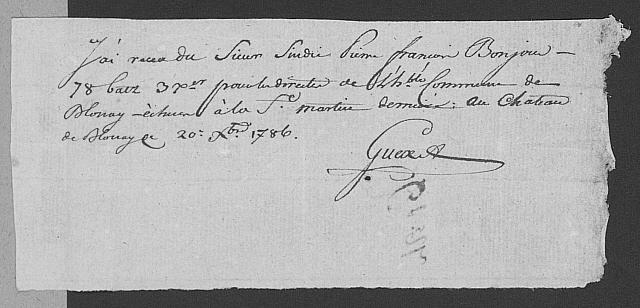 J'ai receu du Sieur Sindic Pierre françois Bonjour —
78 batz 3 xer pour la directe de l'h:ble Commune de
Blonay échue à la St martin dernier: au Château
de Blonay ce 20: Xbre 1786.
Guex